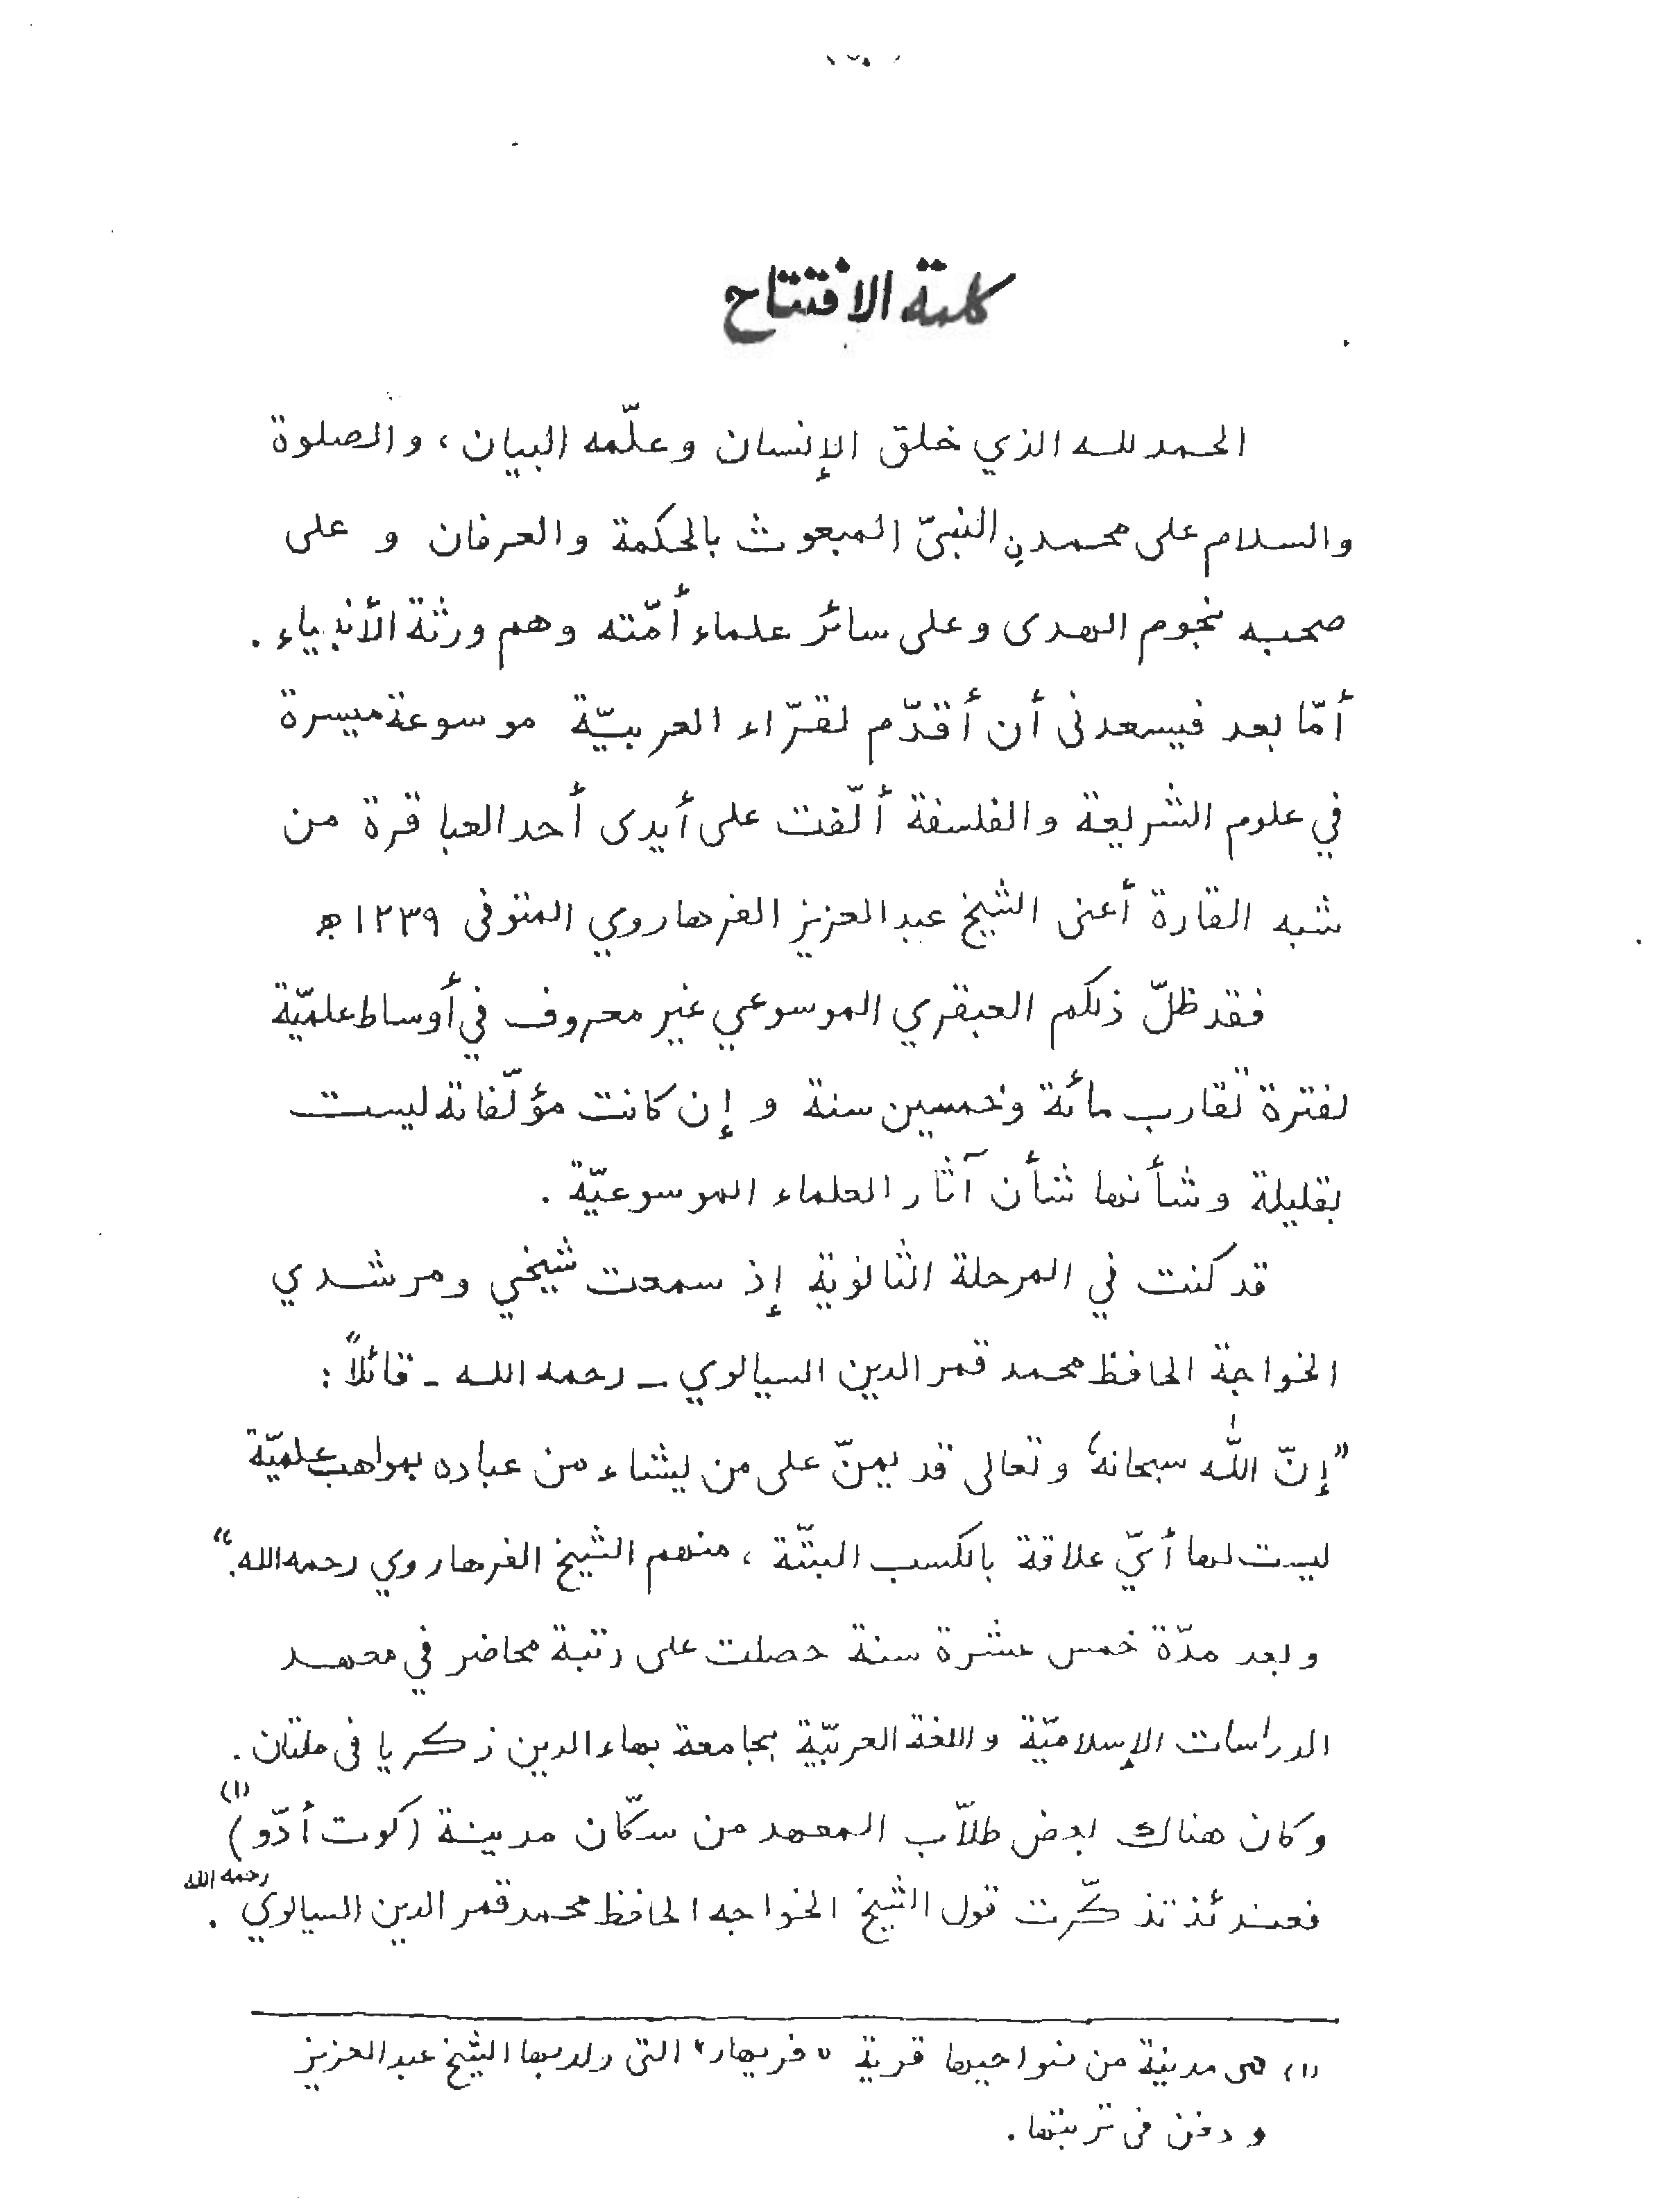 كلمة الافتتاح
الحمد لله الذي خلق الإنسان وعلّمه البيان ، والصلوة
والسلام على محمدنِ النبىّ المبعوث بالحكمة والعرفان و على
صحبه نجوم الهدى وعلى سائر علماء أمّته وهم ورثة الأنبياء .
أمّا بعد فيسعدنى أن أقدّم لقرّاء العربيّة موسوعة ميسرة
في علوم الشريعة والفلسفة ألّفت على أيدى أحد العباقرة من
شبه القارة أعنى الشيخ عبد العزيز الفرهاروي المتوفى ١٢٣٩ﻫ
فقد ظلّ ذلكم العبقري الموسوعي غير معروف في أوساط علميّة
لفترة تقارب مائة وخمسين سنة و إن كانت مؤلّفاته ليست
بقليلة وشأنها شأن آثار العلماء الموسوعيّة .
قد كنت في المرحلة الثانوية إذ سمعت شيخي ومرشدي
الخواجة الحافظ محمد قمر الدين السيالوي ـ رحمه الله ـ قائلاً :
"إنّ اللّٰه سبحانهٗ وتعالى قد يمنّ على من يشاء من عباده بمواهب علميّة
ليست لها أيّ علاقة بالكسب البتّة ، منهم الشيخ الفرهاروي رحمه الله."
وبعد مدّة خمس عشرة سنة حصلت على رتبة محاضر في معهد
الدراسات الإسلاميّة واللغة العربيّة بجامعة بهاء الدين زكريا فى ملتان .
وكان هناك بعض طلاّب المعهد من سكّان مدينة (كوت أدّو) (١)
فعندئذ تذكّرت قول الشيخ الخواجه الحافظ محمد قمر الدين السيالوي رحمه الله .
(١) هى مدينة من نواحيها قرية "فريهار" التى ولد بها الشيخ عبد العزيز
و دفن فى تربتها .